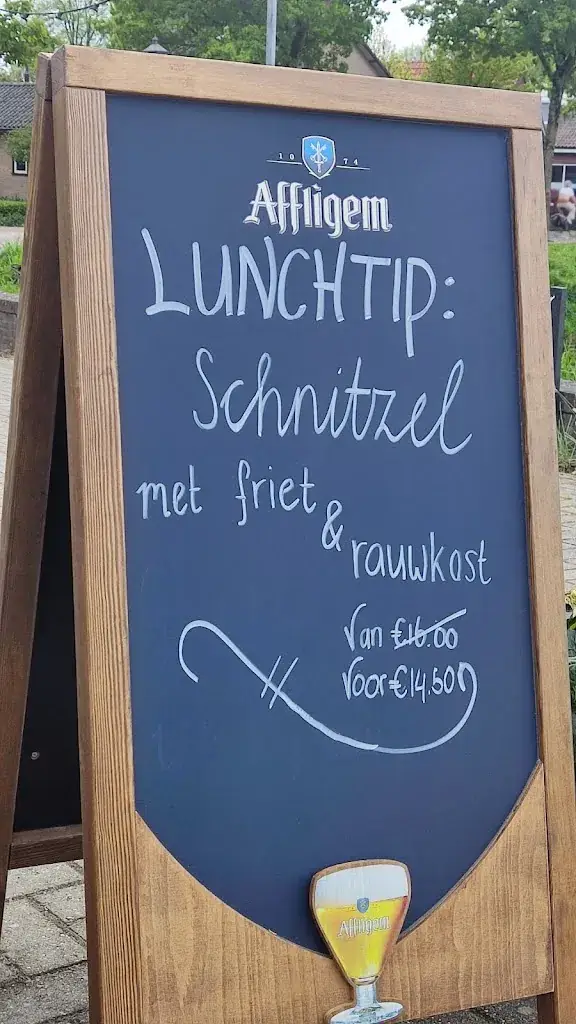 10 74
Affligem
LUNCHTIP:
Schnitzel
met friet
&
rauwkost
Van €16.00
Voor €14.50
Affligem